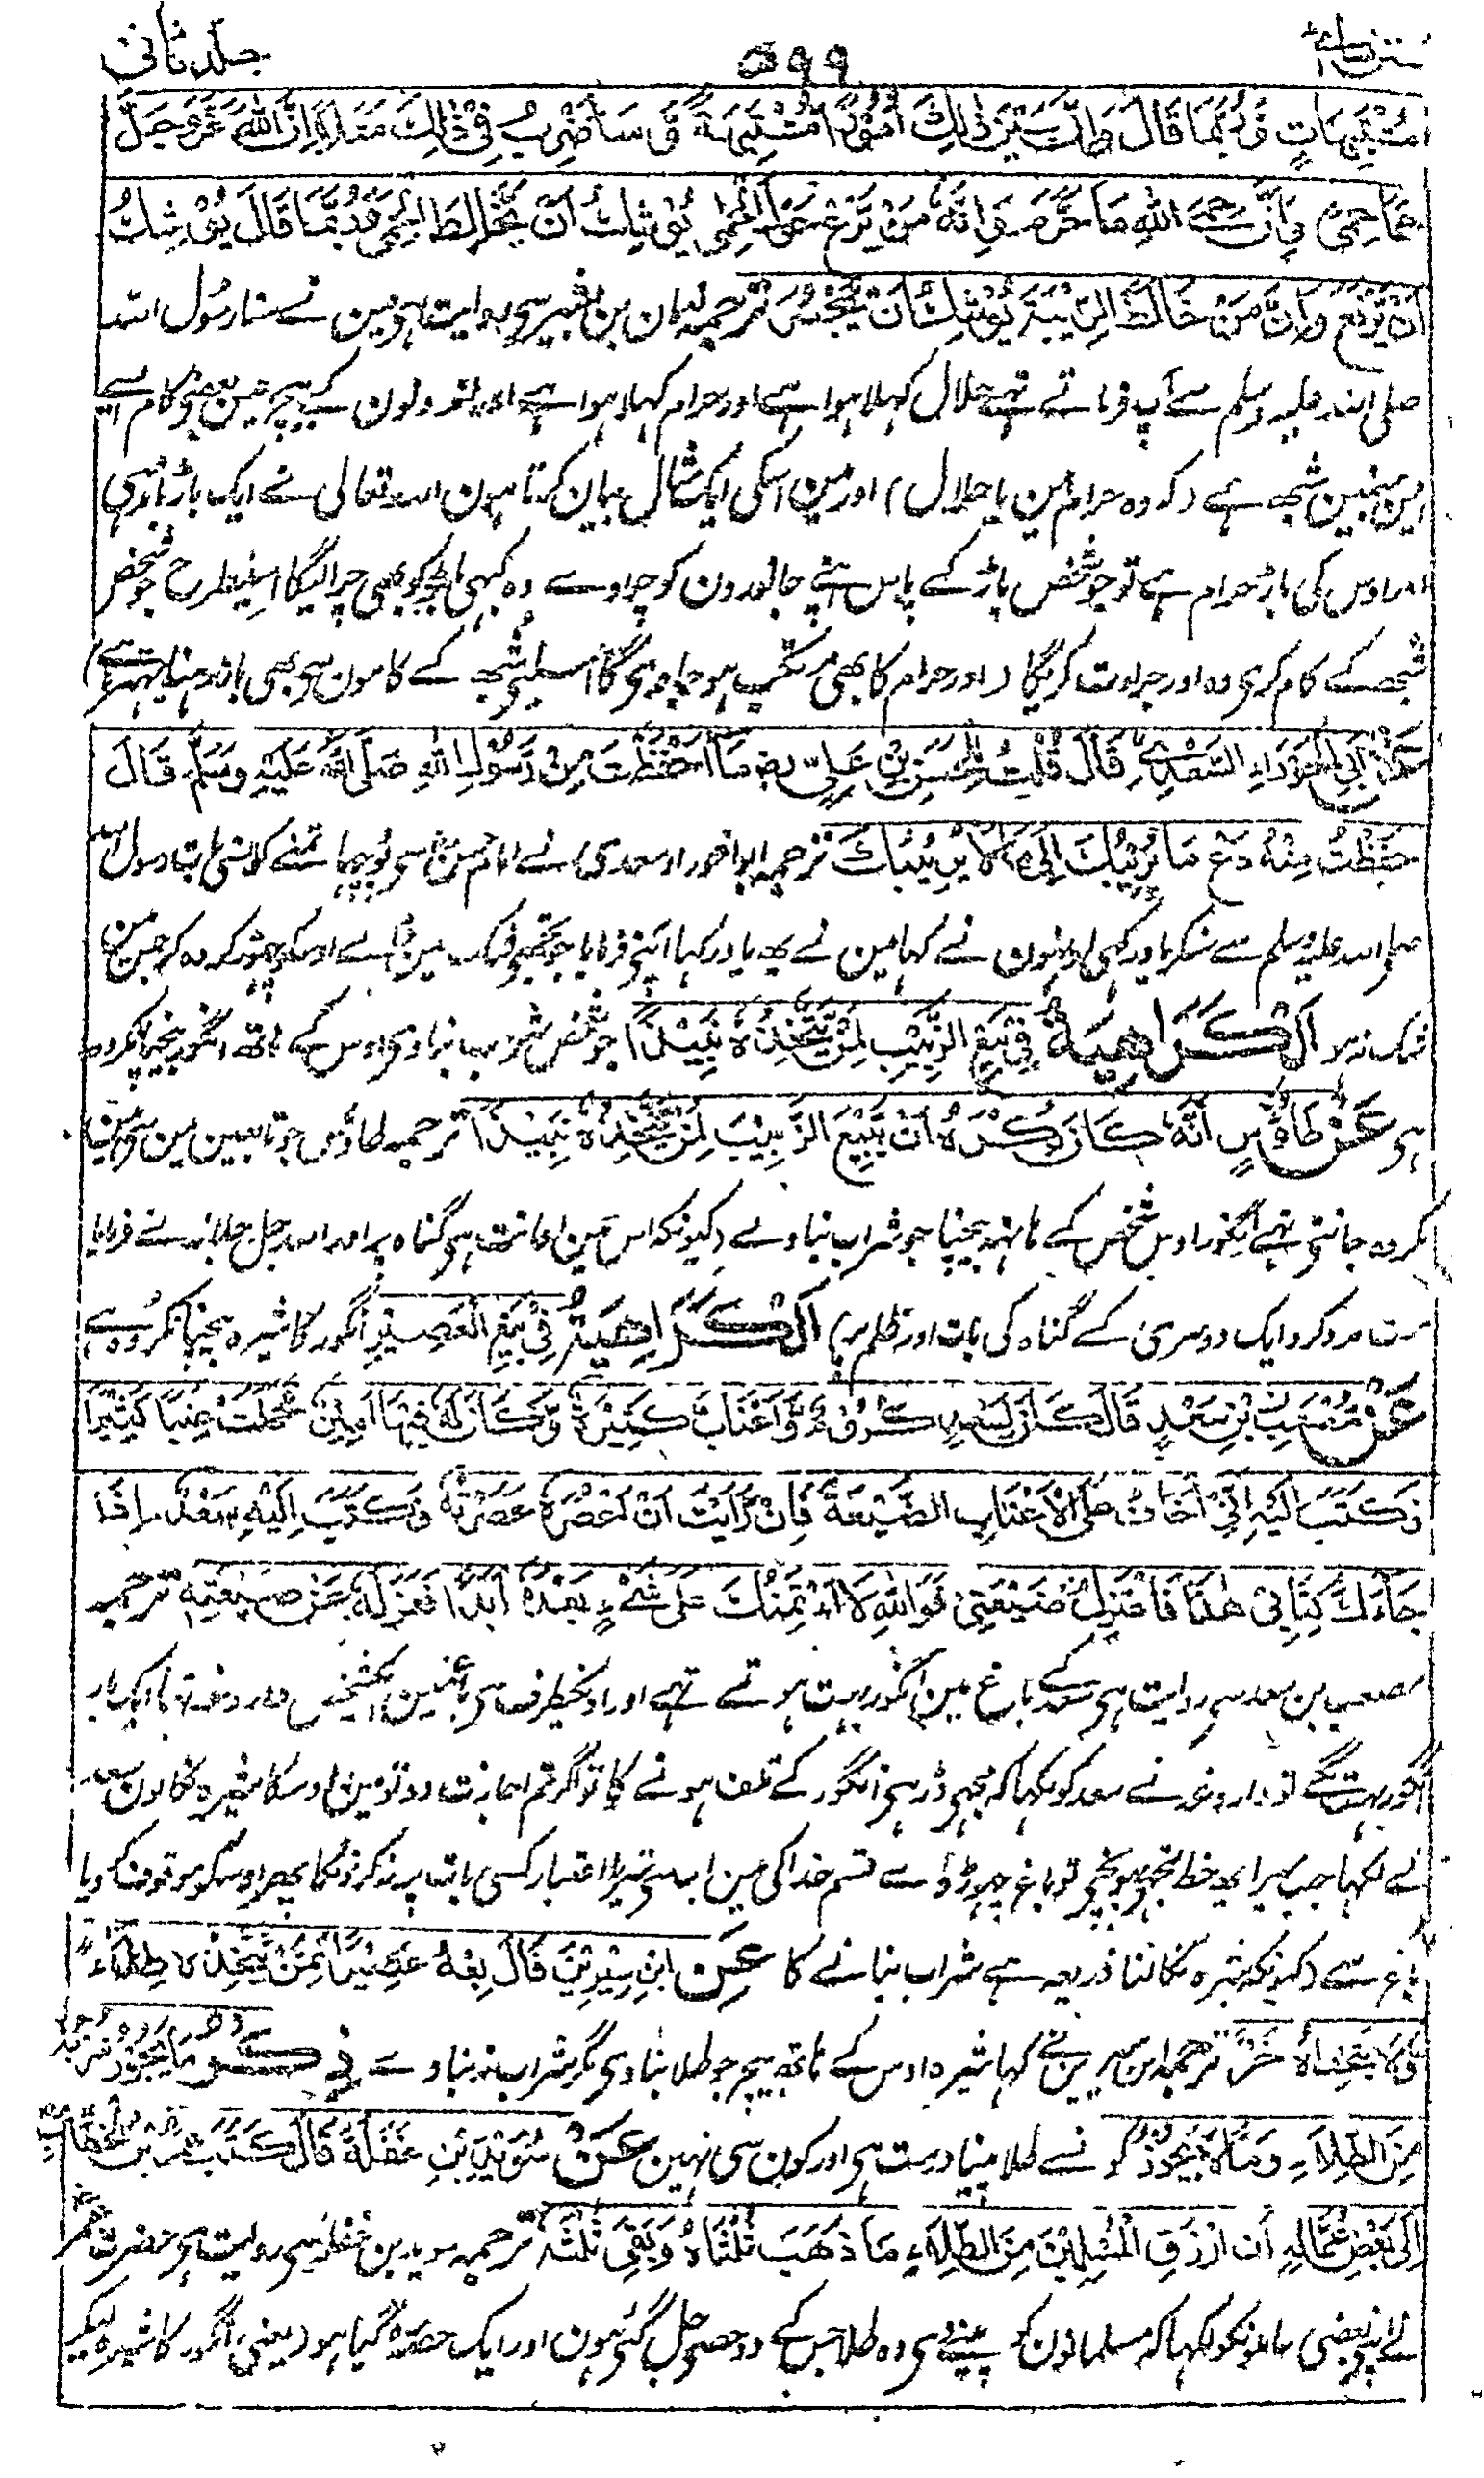 سنن نسائی ۵۹۹ جلد ثانی
مُشْتَبِهَاتٍ وَرُبَّمَا قَالَ وَاِنَّ بَيْنَ ذٰلِكَ اُمُوْرًا مُشْتَبِهَةً وَّسَاَضْرِبُ فِيْ ذٰلِكَ مَثَلًا اِنَّ اللّٰهَ عَزَّوَجَلَّ
حَمَا حِمًى وَاِنَّ حِمَى اللّٰهِ مَا حَرَّمَ وَاِنَّهٗ مَنْ يَّرْعَ حَوْلَ الْحِمٰى يُوْشِكُ اَنْ يُّخَالِطَ الْحِمٰى وَرُبَّمَا قَالَ يُوْشِكُ
اَنْ يَّرْتَعَ وَاِنَّ مَنْ خَالَطَ الرِّيْبَةَ يُوْشِكُ اَنْ يَّجْسُرَ ترجمہ نعمان بن بشیر سے روایت ہو مین نے سنا رسول اللہ
صلی اللہ علیہ وسلم سے آپ فرماتے تہے حلال کہلا ہوا ہے اور حرام کہلا ہوا ہے اور اندونون کے بیچ مین بعضے کام ایسے
ہین جنمین شبہ ہے (کہ وہ حرام ہین یا حلال) اور مین اسکی ایک مثال بیان کرتا ہون اللہ تعالی نے ایک باڑ باندہی
اور اوس کی باڑ حرام ہے تو جو شخص باڑ کے پاس اپنے جانورون کو چراوے وہ کبہی باڑ کو بھی چرا لیگا اسیطرح جو شخص
شبہ کے کام کری وہ اور جراءت کریگا (اور حرام کا بھی مرتکب ہو جاوے گا اسلیے شبہ کے کامون سے بھی باز رہنا بہتر ہے)
عَنْ اَبِی الْحَوْرَاءِ السَّعْدِيِّ قَالَ قُلْتُ لِلْحَسَنِ بْنِ عَلِيٍّ رض مَا حَفِظْتَ مِنْ رَّسُوْلِ اللّٰهِ صَلَّى اللّٰهُ عَلَيْهِ وَسَلَّمَ قَالَ
حَفِظْتُ مِنْهُ دَعْ مَا يُرِيْبُكَ اِلٰى مَا لَا يُرِيْبُكَ ترجمہ ابو الحوراء سعدی نے امام حسن سے پوچہا تمنے کونسی بات رسول اللہ
صلی اللہ علیہ وسلم سے سنکر یاد رکہی اونہون نے کہا مین نے یہ یاد رکہا آپنے فرمایا جو تجھے شک مین ڈالے اوسکو چھوڑ کر وہ کر جس مین
شک نہو اَلْكَرَاهِيَةُ فِيْ بَيْعِ الزَّبِيْبِ لِمَنْ يَّتَّخِذُهٗ نَبِيْذًا جو شخص شراب بناوے اوس کے ہاتھ انگور بیچنا مکروہ
ہی عَنْ طَاوُسٍ اَنَّهٗ كَانَ يَكْرَهُ اَنْ يَّبِيْعَ الزَّبِيْبَ لِمَنْ يَّتَّخِذُهٗ نَبِيْذًا ترجمہ طاؤس جو تابعین مین سے ہین
مکروہ جانتے تہے انگور اوس شخص کے ہاتھ بیچنا جو شراب بناوے (کیونکہ اس مین اعانت ہے گناہ پر اور اللہ جل جلالہ نے فرمایا
مت مدد کرو ایک دوسری کے گناہ کی بات اور ظلم پر) اَلْكَرَاهِيَةُ فِيْ بَيْعِ الْعَصِيْرِ انگور کا شیرہ بیچنا مکروہ ہے
عَنْ مُصْعَبِ بْنِ سَعْدٍ قَالَ كَانَ لِسَعْدٍ كُرُوْمٌ وَّاَعْنَابٌ كَثِيْرَةٌ وَّكَانَ لَهٗ فِيْهَا اَمِيْنٌ فَحَمَلَتْ عِنَبًا كَثِيْرًا
فَكَتَبَ اِلَيْهِ اِنِّيْ اَخَافُ عَلَى الْاَعْنَابِ الضَّيْعَةَ فَاِنْ رَّاَيْتَ اَنْ اَعْصُرَهٗ عَصَرْتُهٗ فَكَتَبَ اِلَيْهِ سَعْدٌ اِذَا
جَاءَكَ كِتَابِيْ هٰذَا فَاعْتَزِلْ ضَيْعَتِيْ فَوَاللّٰهِ لَا اَئْتَمِنُكَ عَلٰى شَيْءٍ بَعْدَهٗ اَبَدًا فَعَزَلَهٗ عَنْ ضَيْعَتِهٖ ترجمہ
مصعب بن سعد سے روایت ہی سعد کے باغ مین انگور بہت ہوتے تہے اور اونکیطرف سے باغ مین ایک شخص داروغہ تہا ایک بار
انگور بہت لگے تو داروغہ نے سعد کو لکہا کہ مجھے ڈر ہی انگور کے تلف ہونے کا تو اگر تم اجازت دو تو مین اوسکا شیرہ نکالون سعد
نے لکہا جب میرا یہ خط تجھے پہونچے تو باغ چہوڑ دے قسم خدا کی مین اب سے تیرا اعتبار کسی بات پر نہ کرونگا پھر اوسکو موقوف کر دیا
باغ سے (کیونکہ شیرہ نکالنا ذریعہ ہے شراب بنانے کا عَنِ ابْنِ سِيْرِيْنَ قَالَ بِعْهُ عَصِيْرًا مِمَّنْ يَّتَّخِذُهٗ طِلَاءً
وَّلَا يَتَّخِذُهٗ خَمْرًا ترجمہ ابن سیرین نے کہا شیرہ اوس کے ہاتھ بیچ جو طلا بناوے مگر شراب نہ بناوے فِيْ ذِكْرِ مَا يَجُوْزُ شُرْبُهٗ
مِنَ الطِّلَاءِ وَمَا لَا يَجُوْزُ کونسے طلا پینا درست ہی اور کون سی نہین عَنْ سُوَيْدِ بْنِ غَفَلَةَ قَالَ كَتَبَ عُمَرُ بْنُ الْخَطَّابِ
اِلٰى بَعْضِ عُمَّالِهٖ اَنِ ارْزُقِ الْمُسْلِمِيْنَ مِنَ الطِّلَاءِ مَا ذَهَبَ ثُلُثَاهُ وَبَقِيَ ثُلُثُهٗ ترجمہ سوید بن غفلہ سے روایت ہی حضرت عمر
نے اپنے بعضی عاملونکو لکہا کہ مسلمانون کو پینے دی وہ طلا جس کے دو حصے جل گئے ہون اور ایک حصہ رہ گیا ہو (یعنی انگور کا شیرہ لیکر